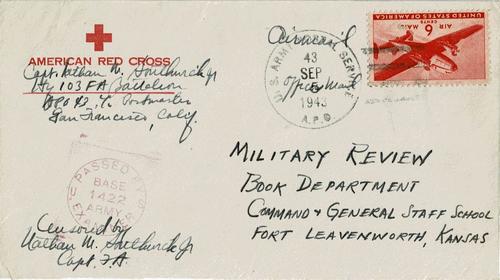 AMERICAN RED CROSS
Capt. Nathan M. Southwick Jr
Hq 103 FA Battalion
APO 43, % Postmaster
San Francisco, Calif.
Airmail
U.S. ARMY POSTAL SERVICE
43
SEP
1943
A.P.O.
Officer's Mail
UNITED STATES OF AMERICA
6
CENTS
PASSED BY
BASE
1422
ARMY
EXAMINER
U.S.
Censored by
Nathan M. Southwick Jr
Capt. F.A.
MILITARY REVIEW
BOOK DEPARTMENT
COMMAND & GENERAL STAFF SCHOOL
FORT LEAVENWORTH, KANSAS